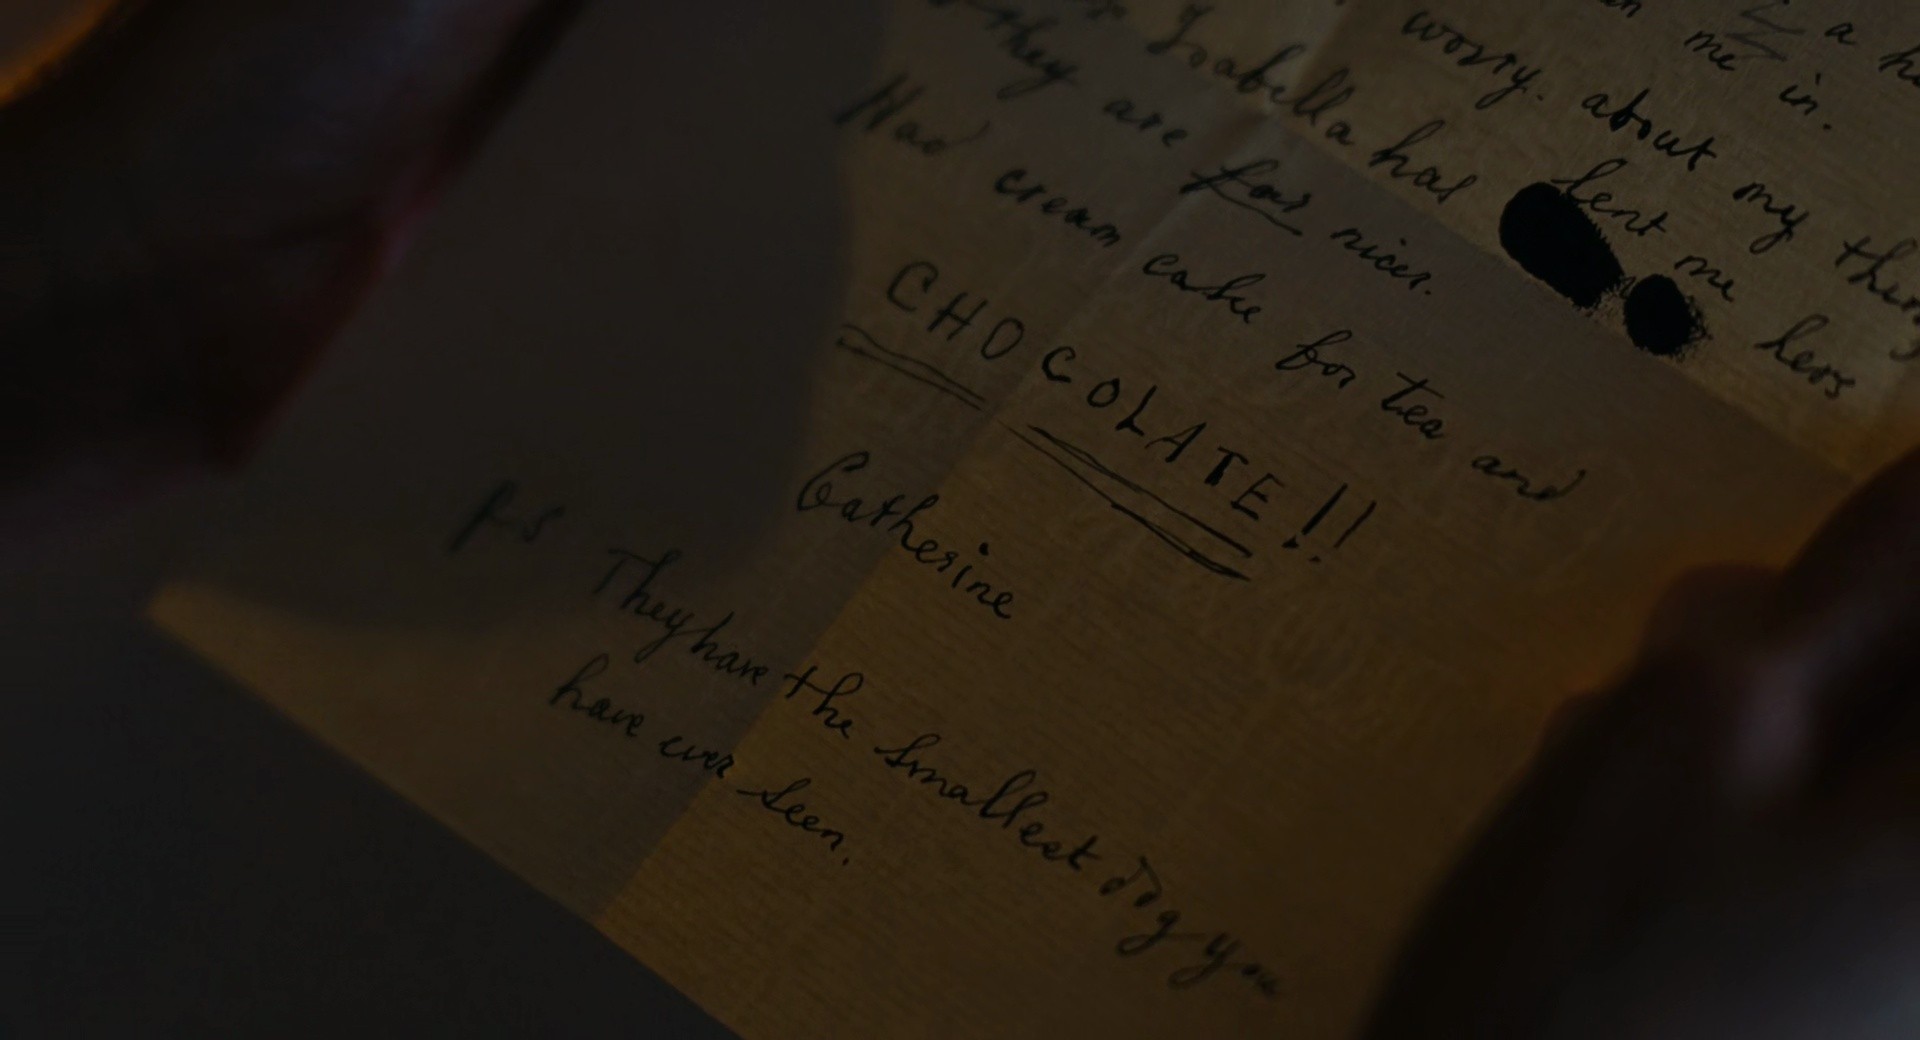 a
me in.
worry. about my
Isabella has sent me hers
they are far nicer.
Had cream cake for tea and
CHOCOLATE!!
Catherine
Ps They have the smallest dog you
have ever seen.